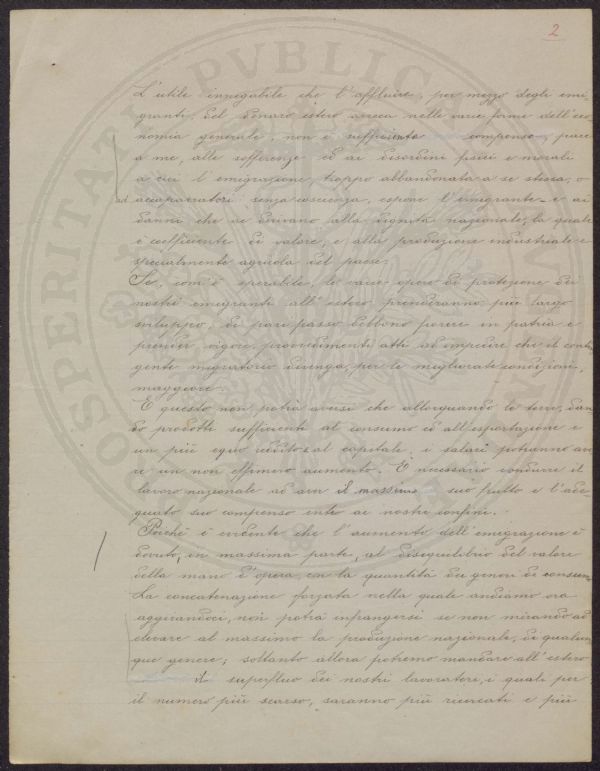 2
L'utile innegabile che l'affluire, per mezzo degli emi-
granti, del denaro estero arreca nelle varie forme dell'eco-
nomia generale, non è sufficiente compenso, pare
a me, alle sofferenze ed ai disordini fisici e morali
a cui l'emigrazione troppo abbandonata a se stessa, o
ad accaparratori senza coscienza, espone l'emigrante - e ai
danni che ne derivano alla dignità nazionale, la quale
è coefficiente di valore, e alla produzione industriale e
specialmente agricola del paese.
Se, com'è sperabile, le varie opere di protezione dei
nostri emigranti all'estero prenderanno più largo
sviluppo, di pari passo debbono porere in patria e
prender vigore, provvedimenti atti ad impedire che il contin
gente migratorio divenga, per le migliorate condizioni,
maggiore.
E questo non potrà aversi che allorquando le terre, dan-
do prodotti sufficienti al consumo ed all'esportazione e
un più equo reddito al capitale, i salari potranno ave
re un non effimero aumento. È necessario condurre il
lavoro nazionale ad aver il massimo suo frutto e l'ade-
guato suo compenso entro ai nostri confini.
Poichè è evidente che l'aumento dell'emigrazione è
dovuto, in massima parte, al disequilibrio del valore
della mano d'opera, con la quantità dei generi di consumo
La concatenazione forzata nella quale andiamo ora
aggirandoci, non potrà infrangersi se non mirando ad
elevare al massimo la produzione nazionale, di qualun
que genere; soltanto allora potremo mandare all'estero
il superfluo dei nostri lavoratori, i quali per
il numero più scarso, saranno più ricercati e più
PROSPERITATI PVBLICAE